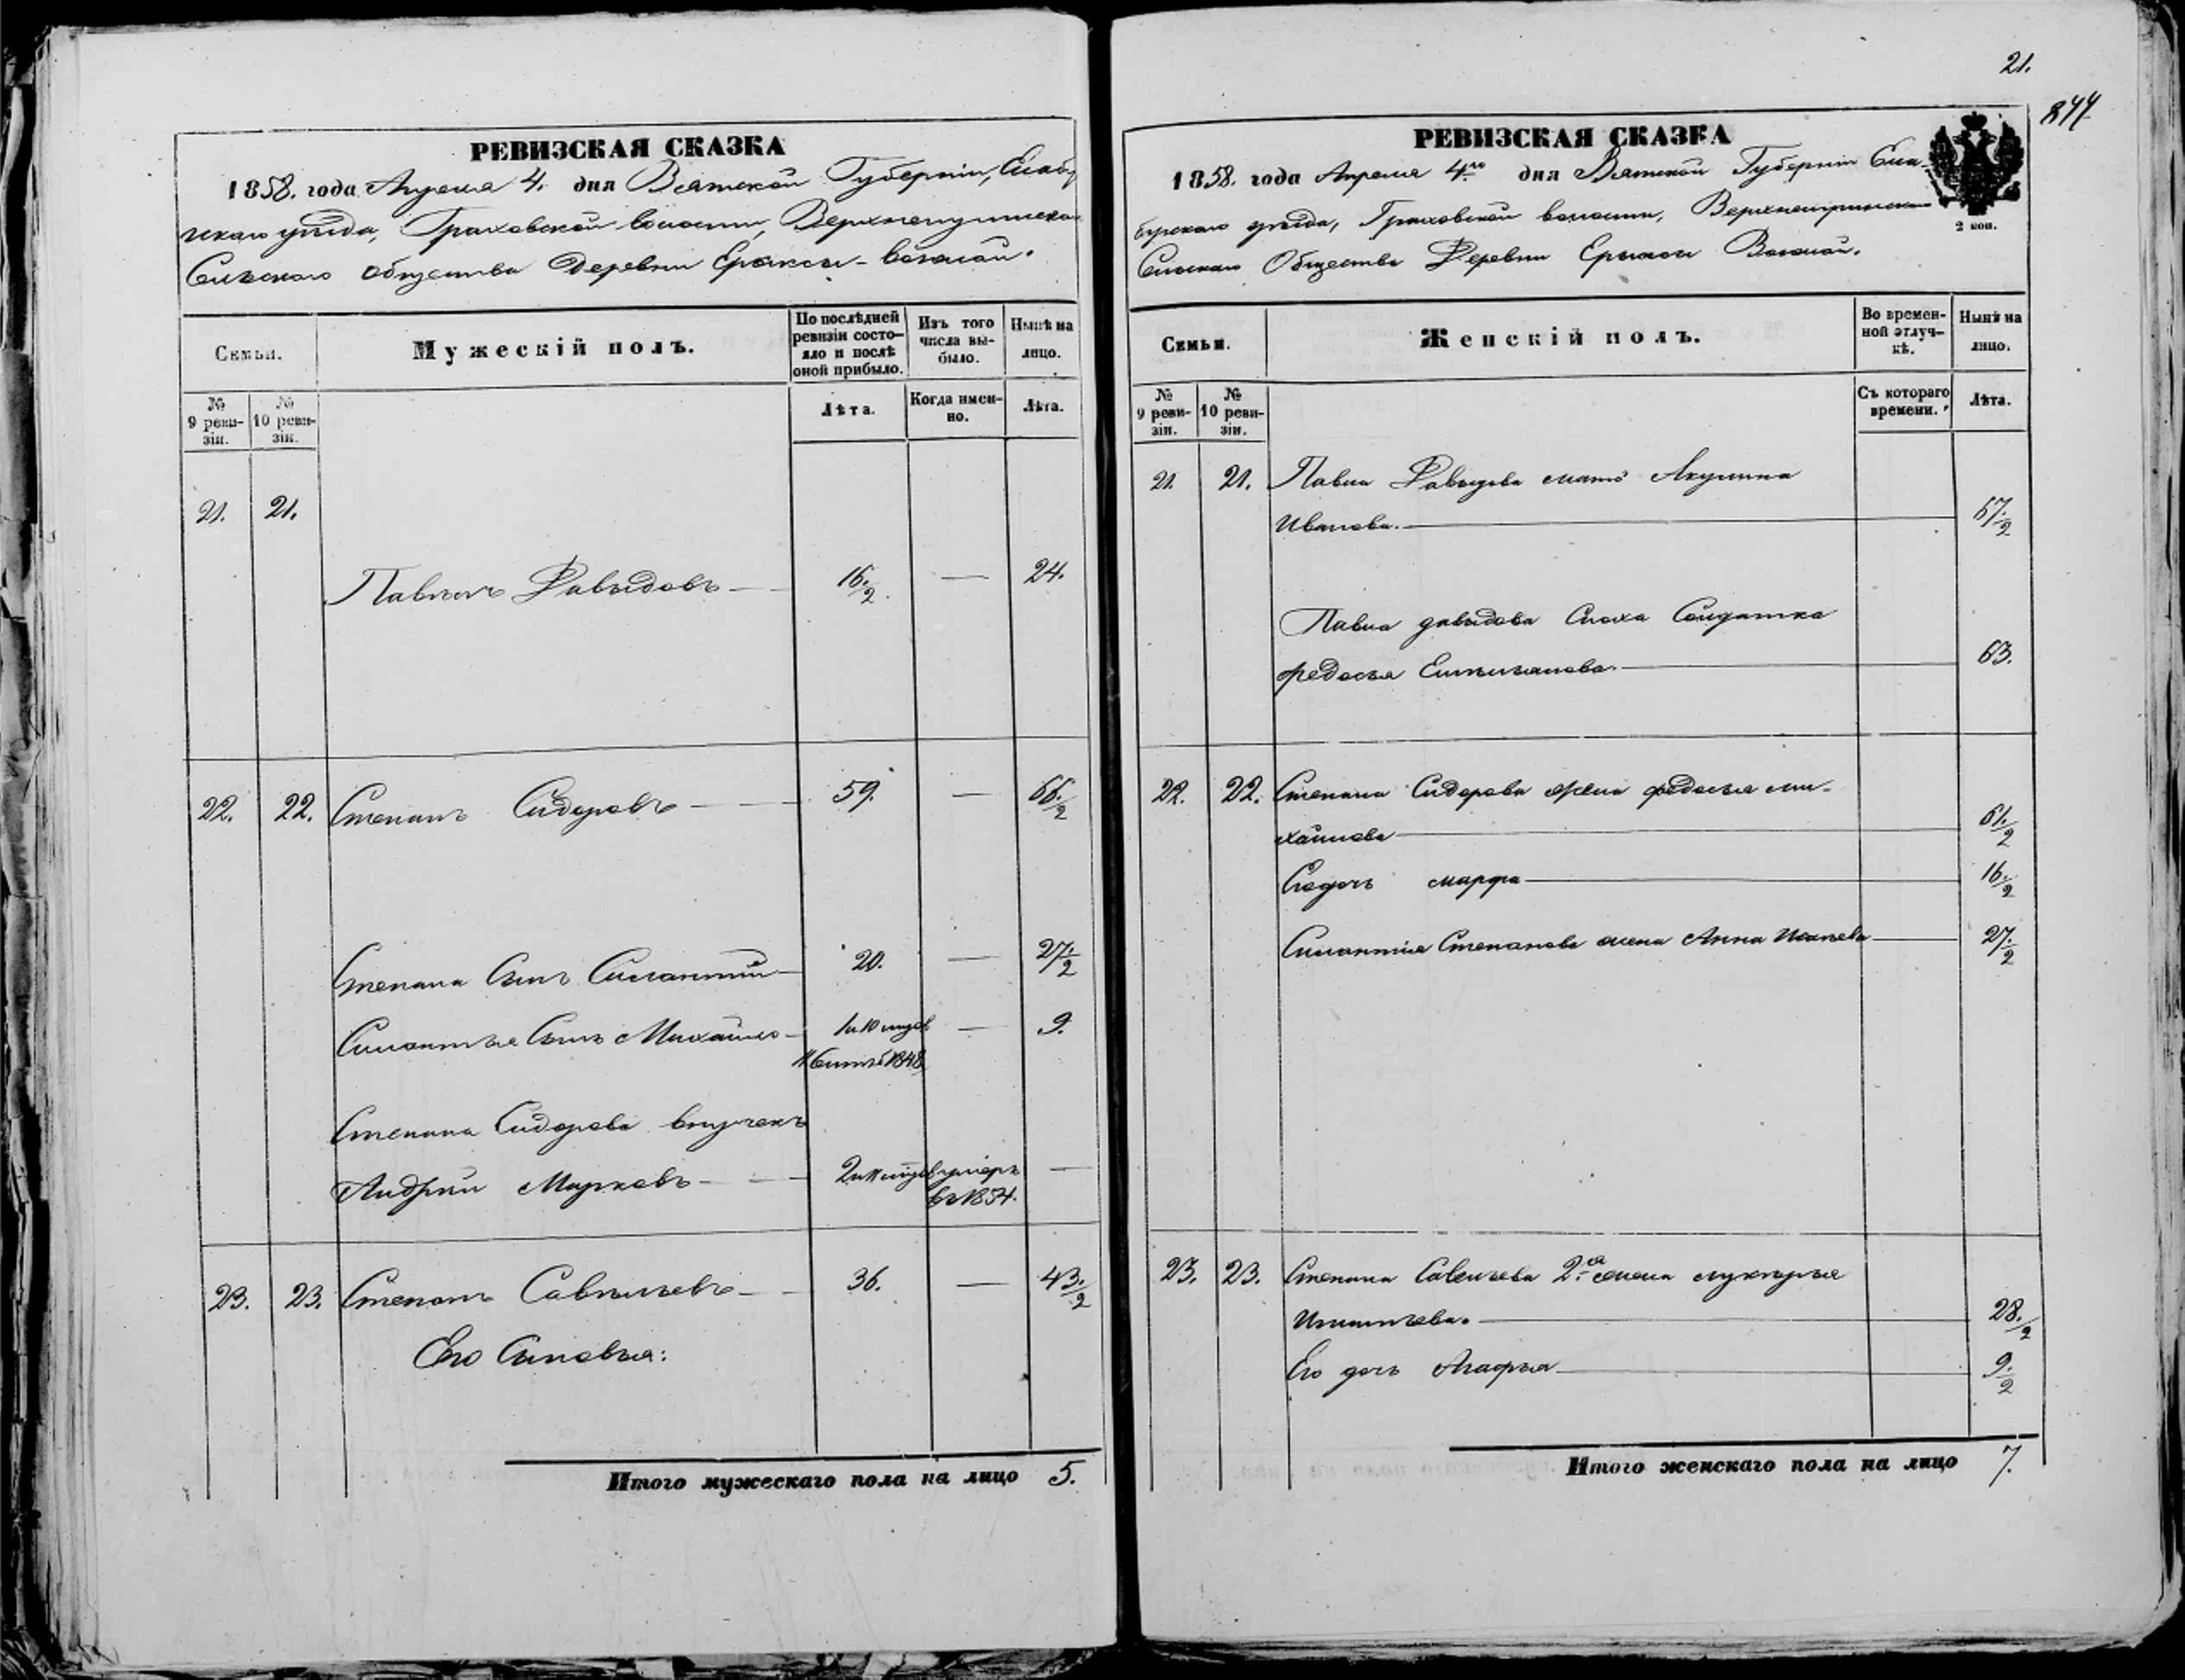 РЕВИЗСКАЯ СКАЗКА
1858. года Апреля 4. дня Вятской Губернiи, Елабу
жскаго уѣзда, Граховской волости,
Сельскаго общества Деревни Ерыксы-
Семьи.
Мужескiй полъ.
По послѣдней ревизiи состояло и послѣ оной прибыло.
Изъ того числа выбыло.
Нынѣ на лицо.
№ 9 ревизiи.
№ 10 ревизiи.
Лѣта.
Когда именно.
Лѣта.
21. 21.
Павелъ Давыдовъ 16./2. — 24.
22. 22. Степанъ Сидоровъ 59. — 66./2
Степана Сынъ Силантiй 20. — 27./2
Силантья Сынъ Михайло — 9.
1848
Степана Сидорова внучекъ
Андрей Марковъ умеръ —
въ 1854.
23. 23. Степанъ Савельевъ 36. — 43./2
Его Сыновья:
Итого мужескаго пола на лицо 5.
21.
844
РЕВИЗСКАЯ СКАЗКА
1858. года Апреля 4го дня Вятской Губернiи Ела-
бугскаго уѣзда, Граховской волости,
2 коп.
Сельскаго Общества Деревни
Семьи.
Женскiй полъ.
Во временной отлучкѣ.
Нынѣ на лицо.
№ 9 ревизiи.
№ 10 ревизiи.
Съ котораго времени.
Лѣта.
21. 21. Павла Давыдова мать Акулина
Иванова. 67./2
Павла давыдова Сноха Солдатка
федосья Емельянова. 63.
22. 22. Степана Сидорова жена федосья ми-
хайлова 61./2
Его дочь марфа 16./2
Силантiя Степанова жена Анна 27./2
23. 23. Степана Савельева 2-я жена лукерья
Игнатьева. 28./2
Его дочь Агафья 9./2
Итого женскаго пола на лицо 7.